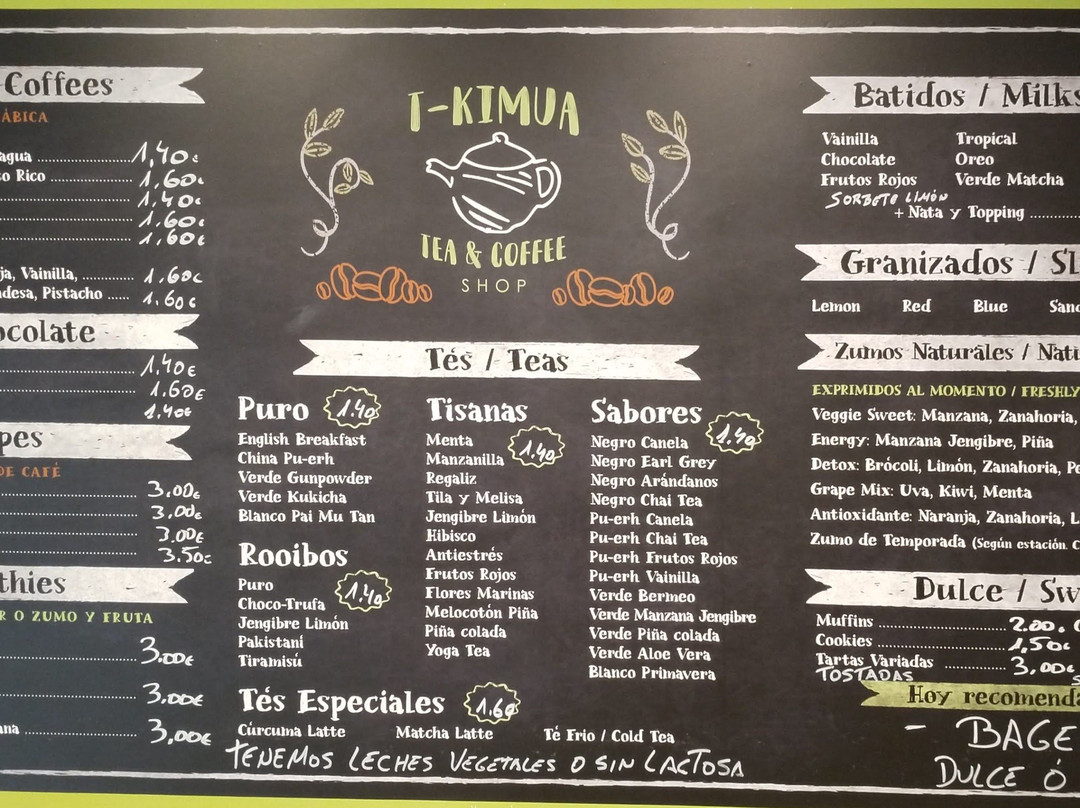 Coffees
ÁBICA
agua 1,40€
o Rico 1,60€
1,40€
1,60€
1,60€
ja, Vainilla, 1,60€
desa, Pistacho 1,60€
ocolate
1,40€
1.60€
1.40€
pes
DE CAFÉ
3.00€
3.00€
3.00€
3.50€
thies
R O ZUMO Y FRUTA
3.00€
3.00€
ana 3,00€
T-KIMUA
TEA & COFFEE
SHOP
Tés / Teas
Puro 1.40
English Breakfast
China Pu-erh
Verde Gunpowder
Verde Kukicha
Blanco Pai Mu Tan
Rooibos
1.40
Puro
Choco-Trufa
Jengibre Limón
Pakistaní
Tiramisú
Tisanas
1.40
Menta
Manzanilla
Regaliz
Tila y Melisa
Jengibre Limón
Hibisco
Antiestrés
Frutos Rojos
Flores Marinas
Melocotón Piña
Piña colada
Yoga Tea
Sabores 1.40
Negro Canela
Negro Earl Grey
Negro Arándanos
Negro Chai Tea
Pu-erh Canela
Pu-erh Chai Tea
Pu-erh Frutos Rojos
Pu-erh Vainilla
Verde Bermeo
Verde Manzana Jengibre
Verde Piña colada
Verde Aloe Vera
Blanco Primavera
Tés Especiales 1.60
Cúrcuma Latte Matcha Latte Té Frio / Cold Tea
TENEMOS LECHES VEGETALES O SIN LACTOSA
Batidos / Milks
Vainilla Tropical
Chocolate Oreo
Frutos Rojos Verde Matcha
SORBETE LIMÓN
+ Nata y Topping
Granizados / Sl
Lemon Red Blue San
Zumos Naturâles / Nat
EXPRIMIDOS AL MOMENTO / FRESHLY
Veggie Sweet: Manzana, Zanahoria,
Energy: Manzana Jengibre, Piña
Detox: Brócoli, Limón, Zanahoria, Pe
Grape Mix: Uva, Kiwi, Menta
Antioxidante: Naranja, Zanahoria, L
Zumo de Temporada (Según estación. C
Dulce / Sw
Muffins 2.00.
Cookies 1,50€
Tartas Variadas 3.00€
TOSTADAS
Hoy recomenda
- BAGE
DULCE Ó